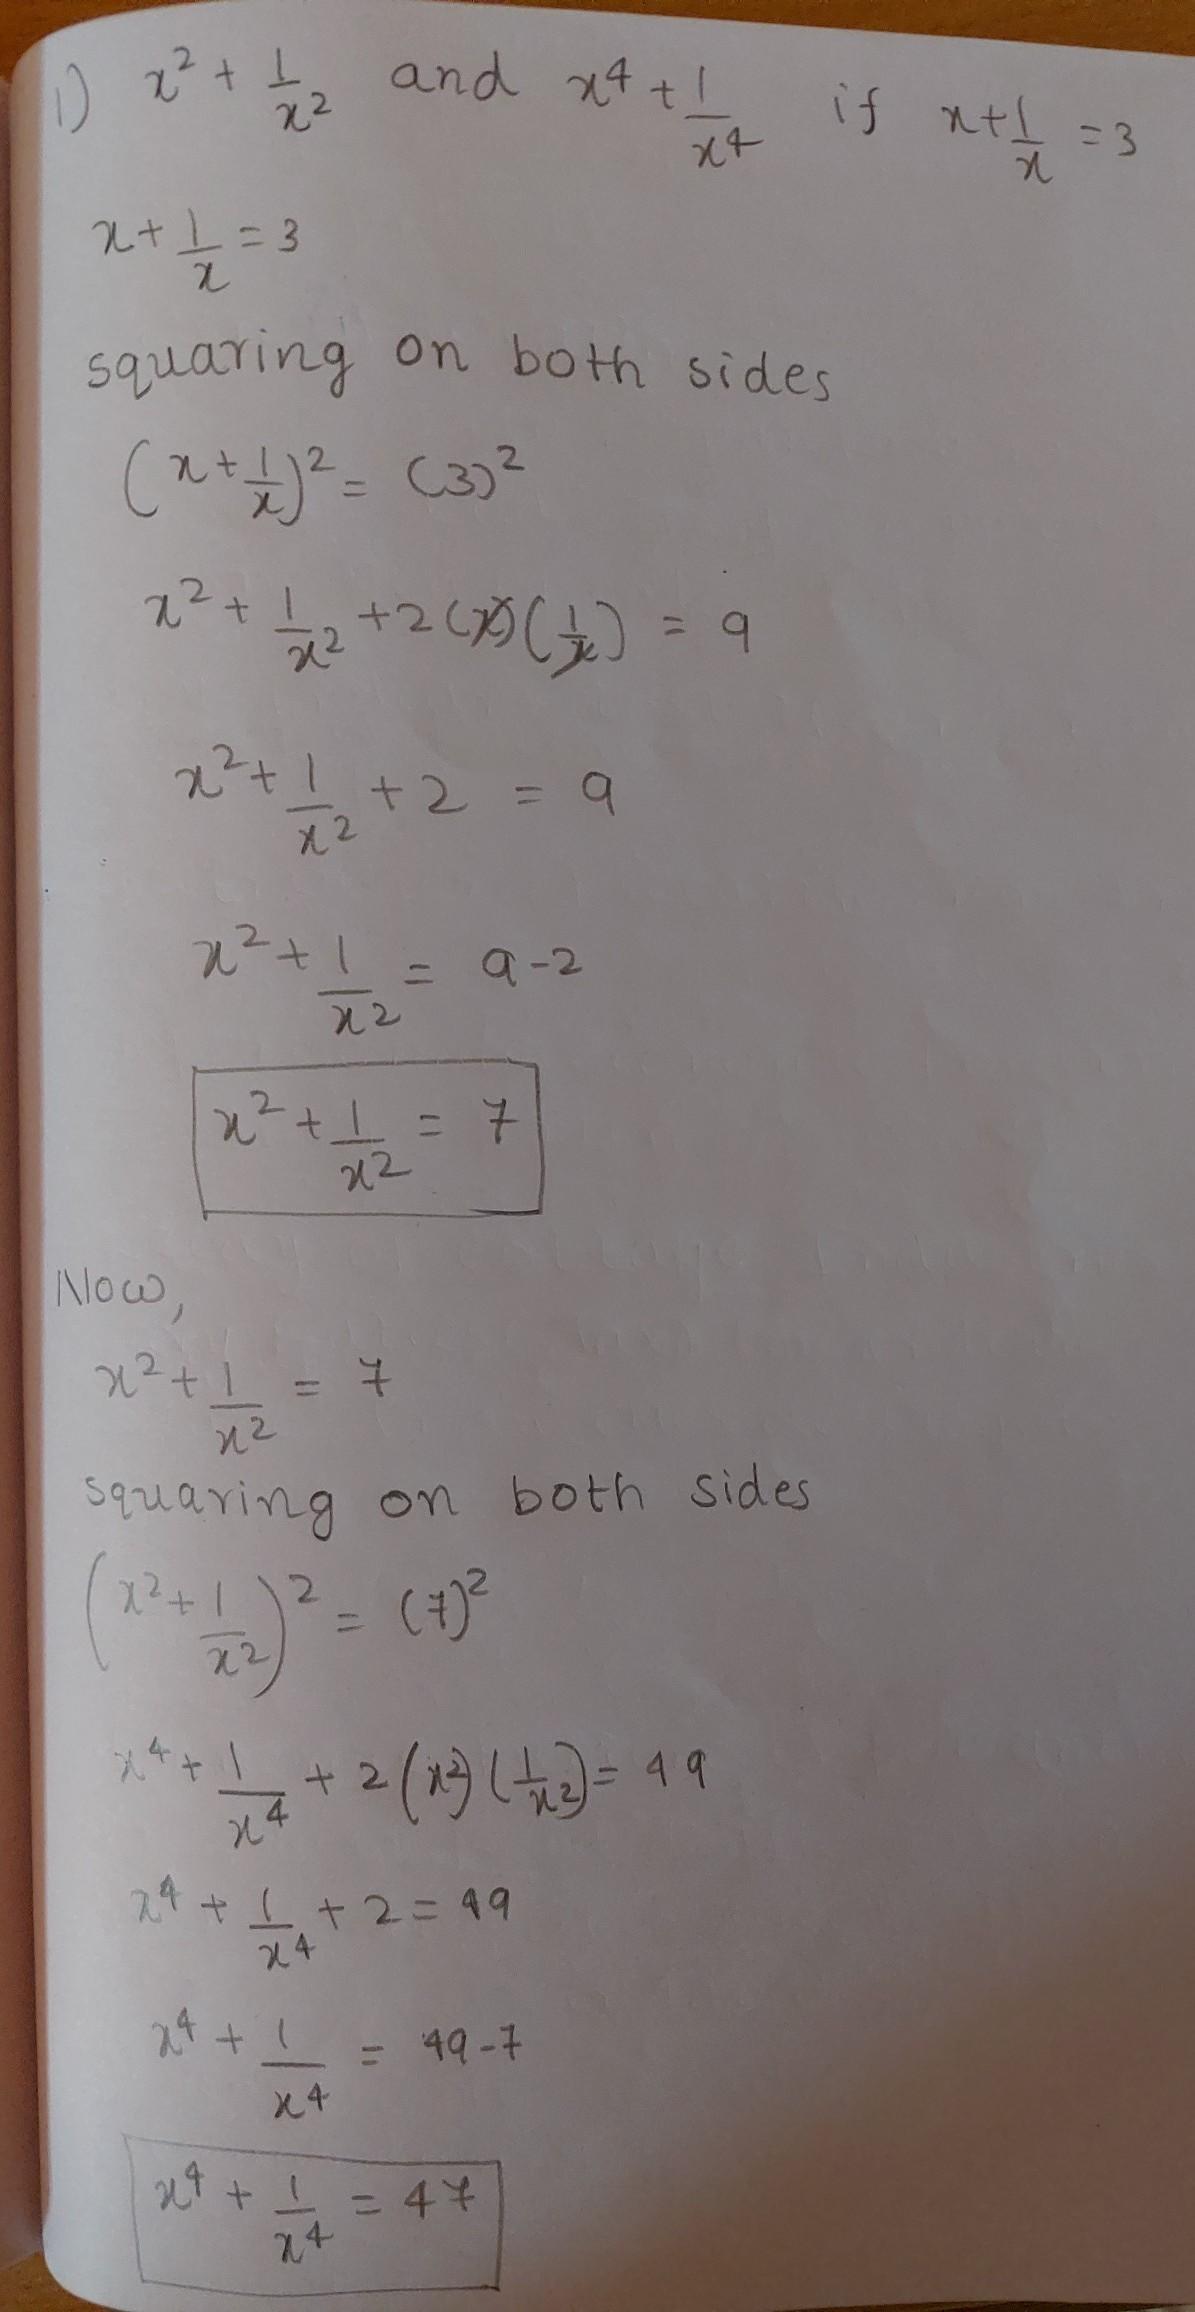 1) x² + 1/x² and x⁴ + 1/x⁴ if x + 1/x = 3
x + 1/x = 3
squaring on both sides
(x + 1/x)² = (3)²
x² + 1/x² + 2(x)(1/x) = 9
x² + 1/x² + 2 = 9
x² + 1/x² = 9-2
x² + 1/x² = 7
Now,
x² + 1/x² = 7
squaring on both sides
(x² + 1/x²)² = (7)²
x⁴ + 1/x⁴ + 2(x²)(1/x²) = 49
x⁴ + 1/x⁴ + 2 = 49
x⁴ + 1/x⁴ = 49-7
x⁴ + 1/x⁴ = 47